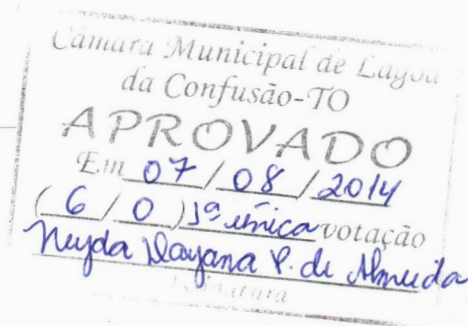 Câmara Municipal de Lagoa
da Confusão-TO
APROVADO
Em 07 / 08 / 2014
( 6 / 0 ) 1ª única votação
Neyda Dayana P. de Almeida
Assinatura